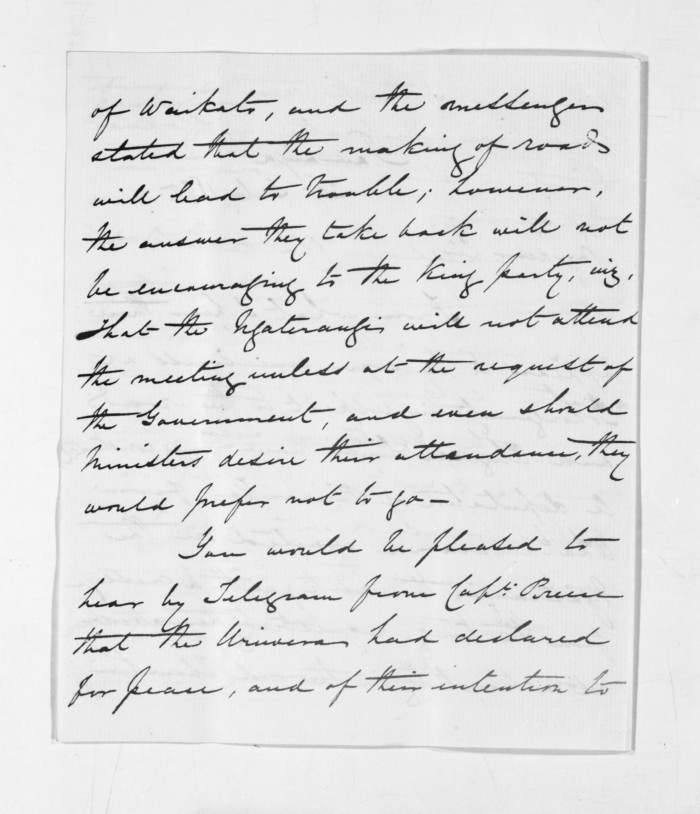 of Waikato, and the messengers
stated that the making of roads
will lead to trouble; however,
the answer they take back will not
be encouraging to the King party, viz,
that the Ngaterangis will not attend
the meeting unless at the request of
the Government, and even should
Ministers desire their attendance, they
would prefer not to go—
You would be pleased to
hear by Telegram from Capt. Preece
that the Uriweras had declared
for peace, and of their intention to